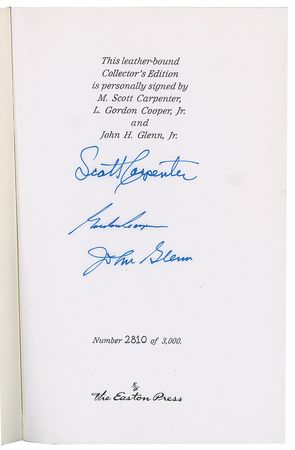 This leather-bound
Collector's Edition
is personally signed by
M. Scott Carpenter,
L. Gordon Cooper, Jr.
and
John H. Glenn, Jr.
Scott Carpenter
Gordon Cooper
John Glenn
Number 2810 of 3,000.
The Easton Press